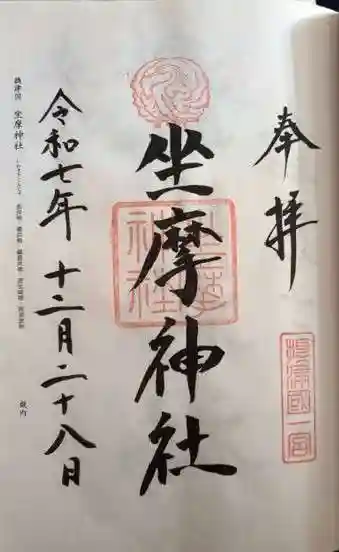 奉拝
摂津国一宮
坐摩神社
坐摩神社
令和七年 十二月二十八日
摂津国 坐摩神社